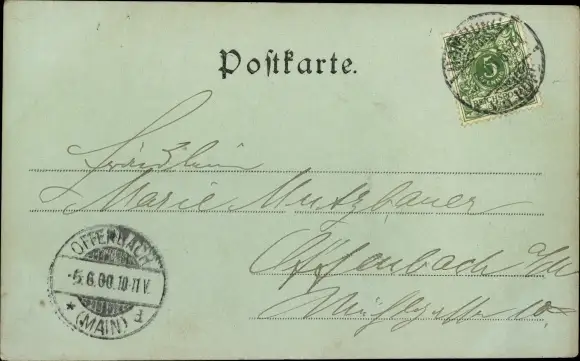 Postkarte.
5
Fräulein
Marie Mutzbauer
Offenbach a/M
OFFENBACH
-5.6.00.10-11V.
* (MAIN) d
10.